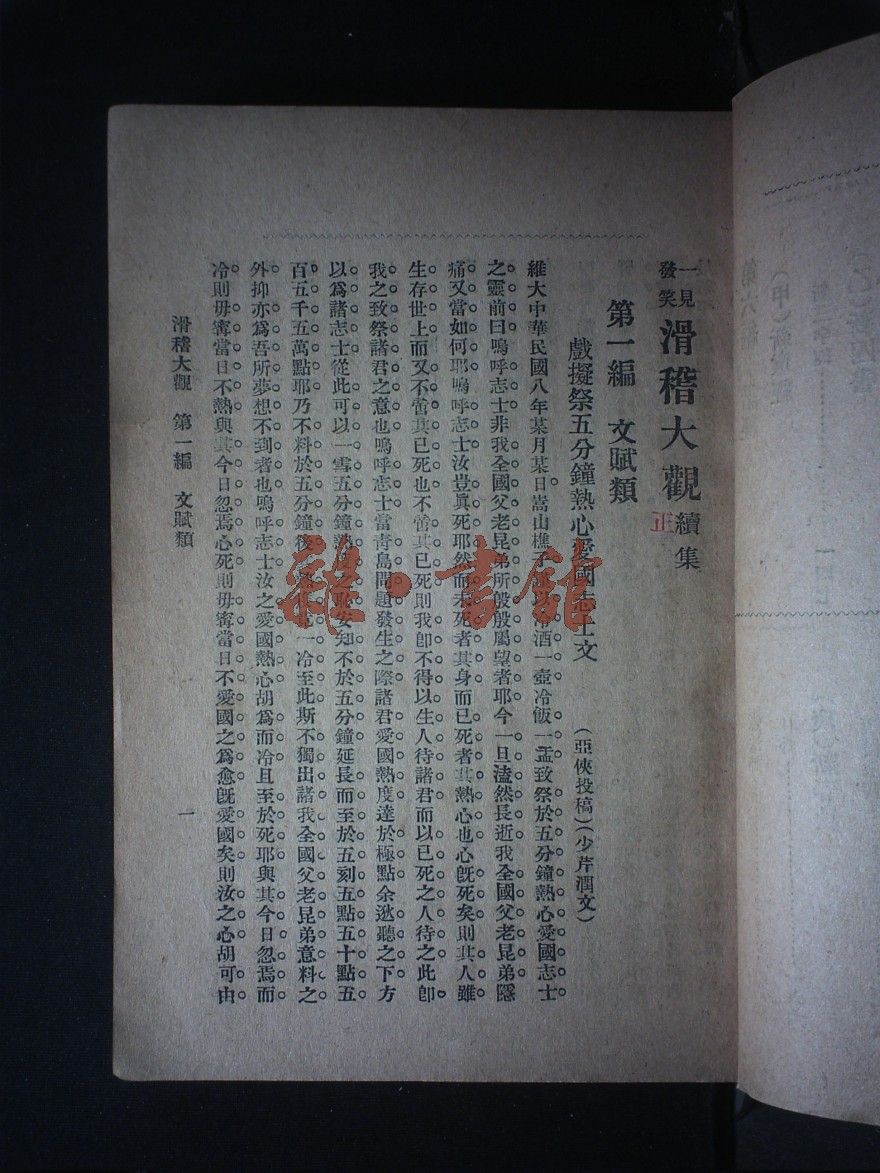 一見發笑 滑稽大觀續集
正
第一編 文賦類
戲擬祭五分鐘熱心愛國志士文 (亞俠投稿)(少芹潤文)
維大中華民國八年某月某日嵩山樵子謹以冷酒一壺冷飯一盂致祭於五分鐘熱心愛國志士
之靈前曰嗚呼志士非我全國父老昆弟所殷殷屬望者耶今一旦溘然長逝我全國父老昆弟隱
痛又當如何耶嗚呼志士汝豈眞死耶然而未死者其身而已死者其熱心也心旣死矣則其人雖
生存世上而又不啻其已死也不啻其已死則我卽不得以生人待諸君而以已死之人待之此卽
我之致祭諸君之意也嗚呼志士當靑島問題發生之際諸君愛國熱度達於極點余逖聽之下方
以爲諸志士從此可以一雪五分鐘熱度之恥安知不於五分鐘延長而至於五刻五點五十點五
百五千五萬點耶乃不料於五分鐘後一冷至此斯不獨出諸我全國父老昆弟意料之
外抑亦爲吾所夢想不到者也嗚呼志士汝之愛國熱心胡爲而冷且至於死耶與其今日忽焉而
冷則毋寗當日不熱與其今日忽焉心死則毋寗當日不愛國之爲愈旣愛國矣則汝之心胡可由
滑稽大觀 第一編 文賦類 一
雜·書館